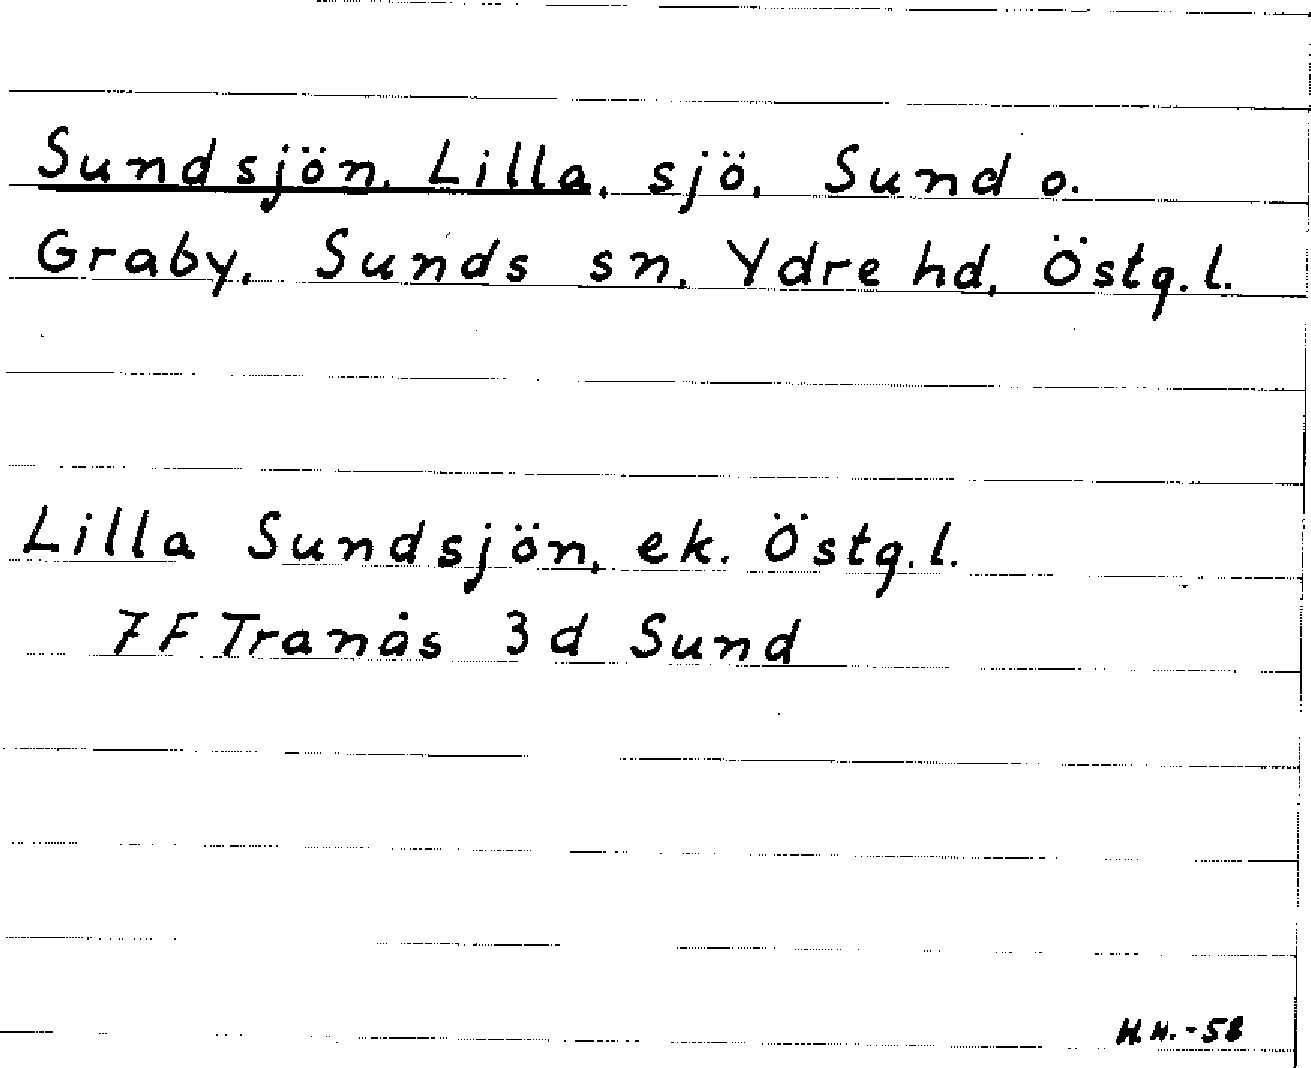 Sundsjön, Lilla, sjö, Sund o.
Graby, Sunds sn, Ydre hd, Östg. l.
Lilla Sundsjön, ek. Östg. l.
7F Tranås 3d Sund
H.H.-58